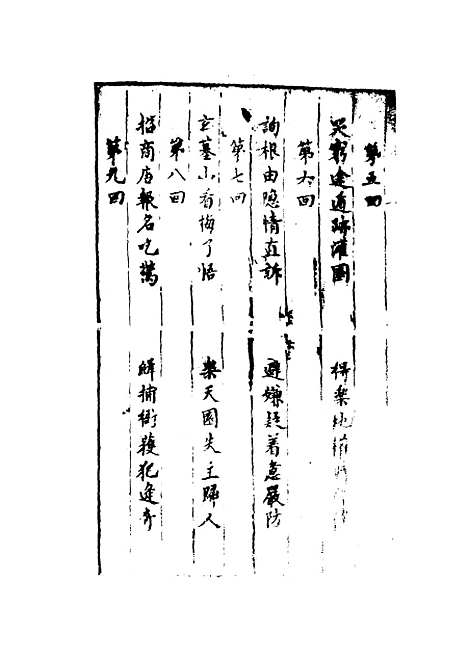 第五回
哭窮途遁跡灌園　得樂
第六回
詢根由隱情直訴　避嫌疑着意嚴防
第七回
玄墓山看梅了悟　樂天園失主歸人
第八回
招商店報名吃驚　緝捕衙獲犯逢奇
第九回